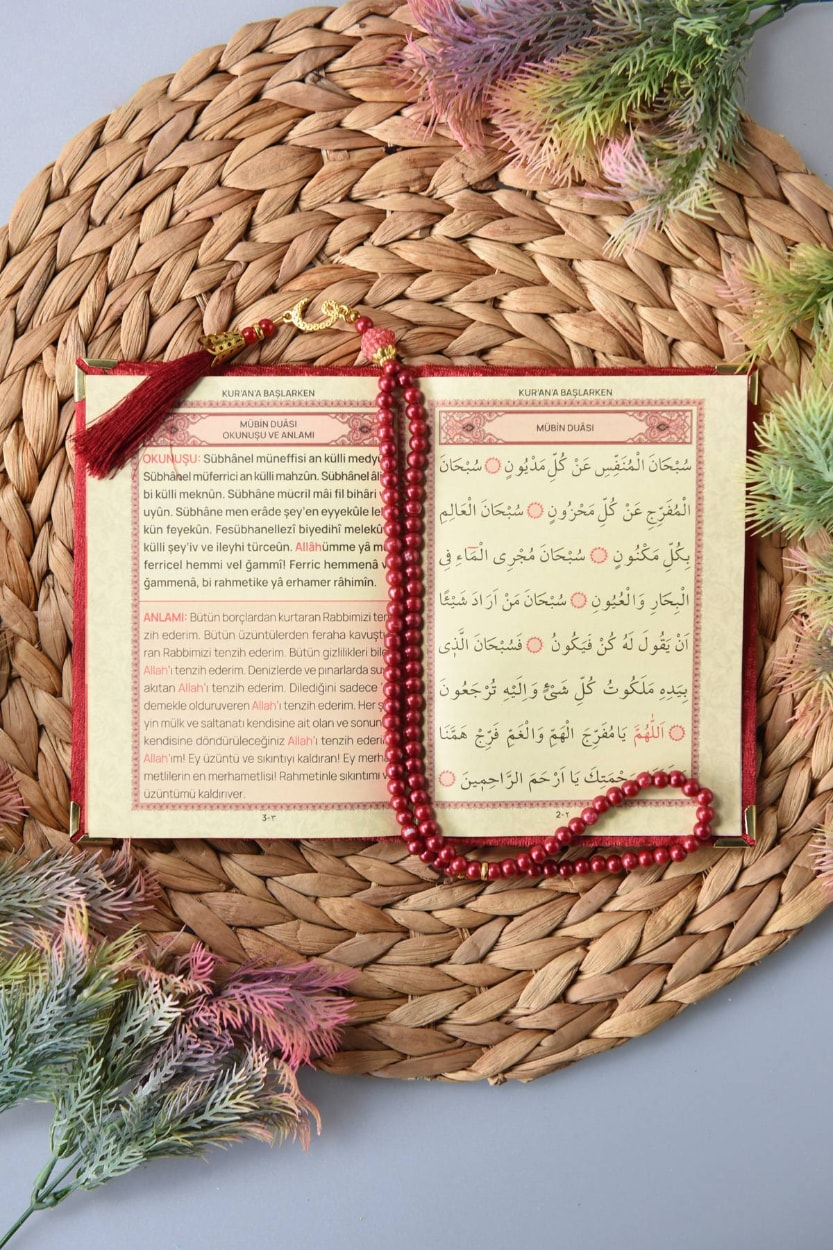 KUR'AN'A BAŞLARKEN
MÜBİN DUÂSI
OKUNUŞU VE ANLAMI
OKUNUŞU: Sübhânel müneffisi an külli
Sübhânel müferrici an külli mahzûn. Sübhânel
bi külli meknûn. Sübhâne mücril mâi fil bihâri
uyûn. Sübhâne men erâde şey'en eyyekûle
kün feyekûn. Fesübhanellezî biyedihî
külli şey'iv ve ileyhi türceûn. Allâhümme yâ
ferricel hemmi vel ğammî! Ferric hemmenâ
ğammenâ, bi rahmetike yâ erhamer râhimîn.
ANLAMI: Bütün borçlardan kurtaran Rabbimizi
zih ederim. Bütün üzüntülerden feraha
ran Rabbimizi tenzih ederim. Bütün gizlilikleri
Allah'ı tenzih ederim. Denizlerde ve pınarlarda
akıtan Allah'ı tenzih ederim. Dilediğini sadece
demekle olduruveren Allah'ı tenzih ederim. Her
yin mülk ve saltanatı kendisine ait olan ve
kendisine döndürüleceğiniz Allah'ı tenzih
Allah'ım! Ey üzüntü ve sıkıntıyı kaldıran! Ey
metlilerin en merhametlisi! Rahmetinle sıkıntımı
üzüntümü kaldırıver.
3-٣
KUR'AN'A BAŞLARKEN
MÜBİN DUÂSI
سُبْحَانَ الْمُنَفِّسِ عَنْ كُلِّ مَدْيُونٍ سُبْحَانَ
الْمُفَرِّجِ عَنْ كُلِّ مَحْزُونٍ سُبْحَانَ الْعَالِمِ
بِكُلِّ مَكْنُونٍ سُبْحَانَ مُجْرِى الْمَٓاءِ فِى
الْبِحَارِ وَالْعُيُونِ سُبْحَانَ مَنْ اَرَادَ شَيْئًا
اَنْ يَقُولَ لَهُ كُنْ فَيَكُونُ فَسُبْحَانَ الَّذٖى
بِيَدِهٖ مَلَكُوتُ كُلِّ شَىْءٍ وَاِلَيْهِ تُرْجَعُونَ
اَللّٰهُمَّ يَامُفَرِّجَ الْهَمِّ وَالْغَمِّ فَرِّجْ هَمَّنَا
يَا اَرْحَمَ الرَّاحِمٖينَ
2-٢